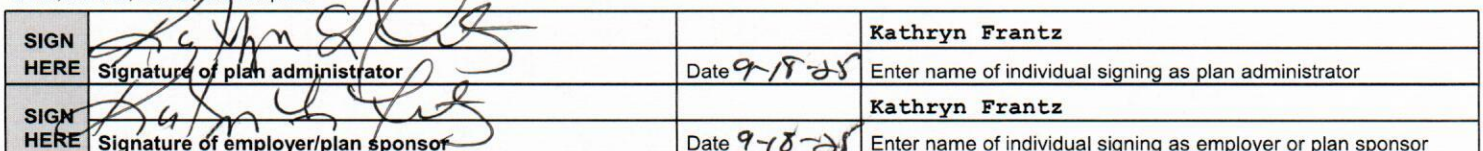 SIGN Kathryn Frantz
HERE Signature of plan administrator Date 9-18-25 Enter name of individual signing as plan administrator
SIGN Kathryn Frantz
HERE Signature of employer/plan sponsor Date 9-18-25 Enter name of individual signing as employer or plan sponsor